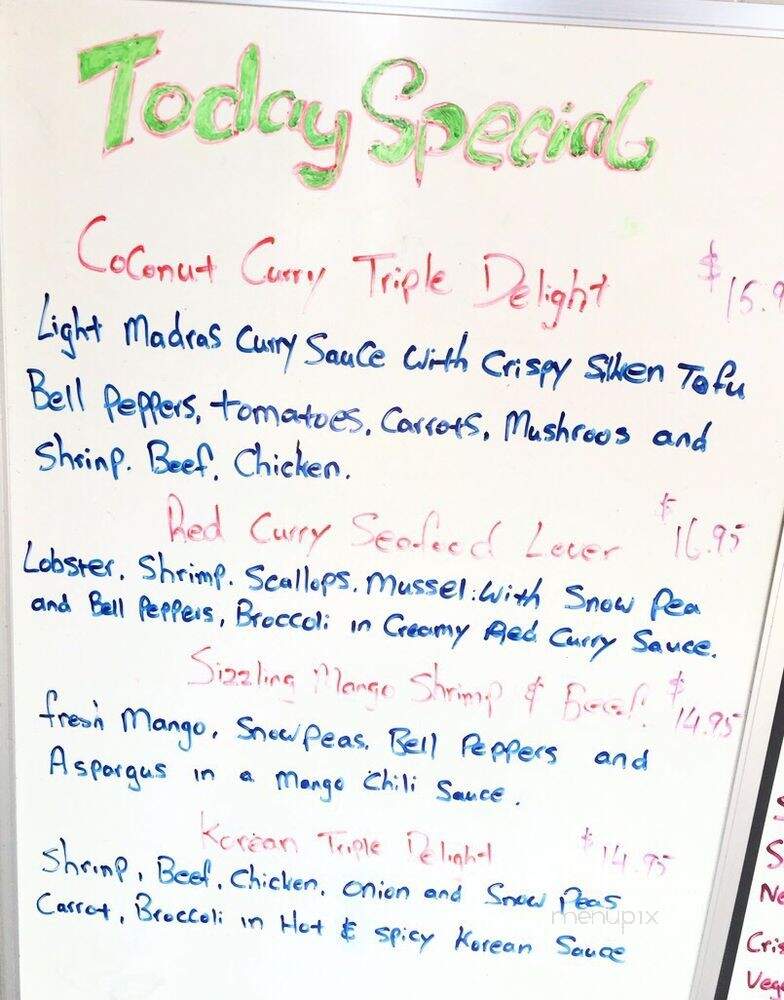 Today Special
Coconut Curry Triple Delight $15.9
Light Madras Curry Sauce with Crispy Silken Tofu
Bell Peppers, tomatoes, Carrots, Mushroos and
Shrimp. Beef, Chicken.
Red Curry Seafood Lover $16.95
Lobster, Shrimp. Scallops. Mussel: with Snow Pea
and Bell Peppers, Broccoli in Creamy Red Curry Sauce.
Sizzling Mango Shrimp & Beef. $14.95
fresh Mango, Snow Peas, Bell Peppers and
Aspargus in a Mango Chili Sauce.
Korean Triple Delight $14.95
Shrimp, Beef, Chicken, onion and Snow Peas
Carrot, Broccoli in Hot & Spicy Korean Sauce
menupix
S
S
Ne
Cris
Veg